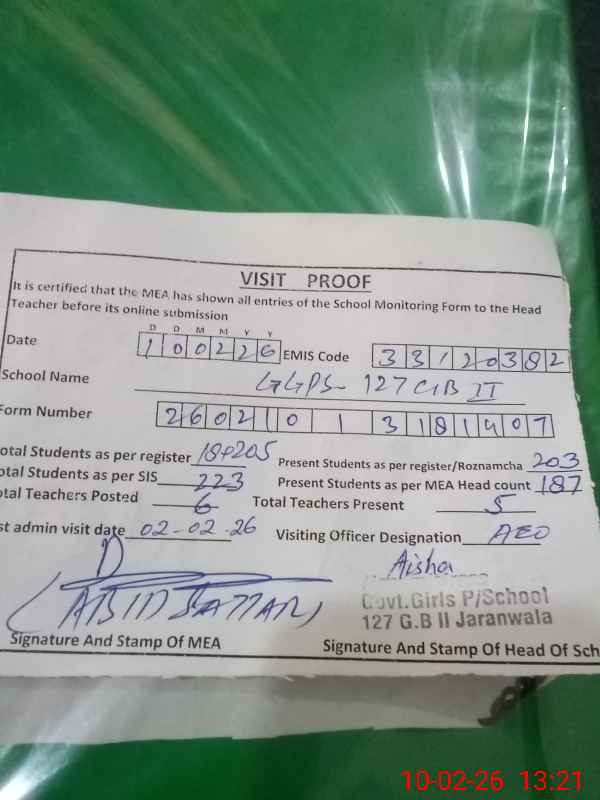 VISIT PROOF
It is certified that the MEA has shown all entries of the School Monitoring Form to the Head
Teacher before its online submission
D D M M Y Y
Date 100226 EMIS Code 33120382
School Name GGPS- 127 GB II
Form Number
otal Students as per register 205 Present Students as per register/Roznamcha 203
otal Students as per SIS 223 Present Students as per MEA Head count 187
otal Teachers Posted 6 Total Teachers Present 5
st admin visit date 02-02-26 Visiting Officer Designation AEO
Aisha
(ABID SATTAR) Govt.Girls P/School
127 G.B II Jaranwala
Signature And Stamp Of MEA Signature And Stamp Of Head Of Sch
10-02-26 13:21